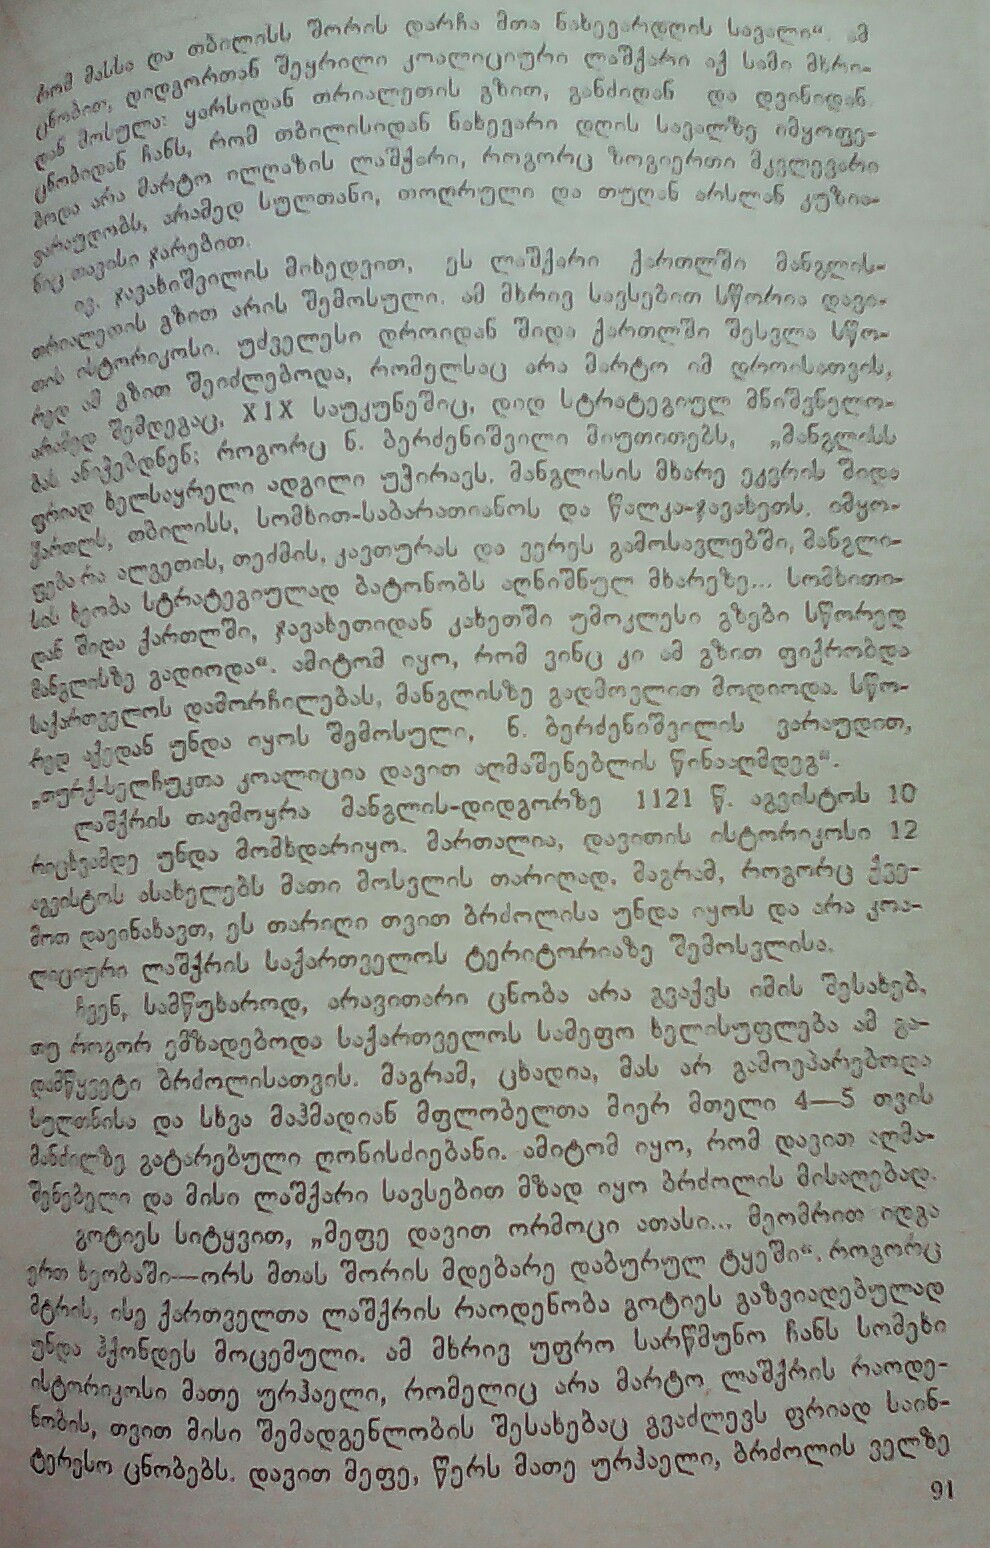 რომ მასსა და თბილისს შორის დარჩა მთა ნახევარდღის სავალი“. ამ
ცნობით, დიდგორთან შეყრილი კოალიციური ლაშქარი აქ სამი მხრი-
დან მოსულა: ყარსიდან თრიალეთის გზით, განძიდან და დვინიდან.
ცნობიდან ჩანს, რომ თბილისიდან ნახევარი დღის სავალზე იმყოფე-
ბოდა არა მარტო ილღაზის ლაშქარი, როგორც ზოგიერთი მკვლევარი
ვარაუდობს, არამედ სულთანი, თოღრული და თუღან არსლან კუზია-
ნიც თავისი ჯარებით.
ივ. ჯავახიშვილის მიხედვით, ეს ლაშქარი ქართლში მანგლის-
თრიალეთის გზით არის შემოსული. ამ მხრივ სავსებით სწორია დავი-
თის ისტორიკოსი. უძველესი დროიდან შიდა ქართლში შესვლა სწო-
რედ ამ გზით შეიძლებოდა, რომელსაც არა მარტო იმ დროისათვის,
არამედ შემდეგაც, XIX საუკუნეშიც, დიდ სტრატეგიულ მნიშვნელო-
ბას ანიჭებდნენ; როგორც ნ. ბერძენიშვილი მიუთითებს, „მანგლისს
ფრიად ხელსაყრელი ადგილი უჭირავს. მანგლისის მხარე ეკვრის შიდა
ქართლს, თბილისს, სომხით-საბარათიანოს და წალკა-ჯავახეთს. იმყო-
ფება რა ალგეთის, თეძმის, კავთურას და ვერეს გამოსავლებში, მანგლი-
სის ხეობა სტრატეგიულად ბატონობს აღნიშნულ მხარეზე... სომხითი-
დან შიდა ქართლში, ჯავახეთიდან კახეთში უმოკლესი გზები სწორედ
მანგლისზე გადიოდა“. ამიტომ იყო, რომ ვინც კი ამ გზით ფიქრობდა
საქართველოს დამორჩილებას, მანგლისზე გადმოვლით მოდიოდა. სწო-
რედ აქედან უნდა იყოს შემოსული, ნ. ბერძენიშვილის ვარაუდით,
„თურქ-სელჩუკთა კოალიცია დავით აღმაშენებლის წინააღმდეგ“.
ლაშქრის თავმოყრა მანგლის-დიდგორზე 1121 წ. აგვისტოს 10
რიცხვამდე უნდა მომხდარიყო. მართალია, დავითის ისტორიკოსი 12
აგვისტოს ასახელებს მათი მოსვლის თარიღად. მაგრამ, როგორც ქვე-
მოთ დავინახავთ, ეს თარიღი თვით ბრძოლისა უნდა იყოს და არა კოა-
ლიციური ლაშქრის საქართველოს ტერიტორიაზე შემოსვლისა.
ჩვენ, სამწუხაროდ, არავითარი ცნობა არა გვაქვს იმის შესახებ,
თუ როგორ ემზადებოდა საქართველოს სამეფო ხელისუფლება ამ გა-
დამწყვეტი ბრძოლისათვის. მაგრამ, ცხადია, მას არ გამოეპარებოდა
სულთნისა და სხვა მაჰმადიან მფლობელთა მიერ მთელი 4—5 თვის
მანძილზე გატარებული ღონისძიებანი. ამიტომ იყო, რომ დავით აღმა-
შენებელი და მისი ლაშქარი სავსებით მზად იყო ბრძოლის მისაღებად.
გოტიეს სიტყვით, „მეფე დავით ორმოცი ათასი... მეომრით იდგა
ერთ ხეობაში—ორს მთას შორის მდებარე დაბურულ ტყეში“. როგორც
მტრის, ისე ქართველთა ლაშქრის რაოდენობა გოტიეს გაზვიადებულად
უნდა ჰქონდეს მოცემული. ამ მხრივ უფრო სარწმუნო ჩანს სომეხი
ისტორიკოსი მათე ურჰაელი, რომელიც არა მარტო ლაშქრის რაოდე-
ნობის, თვით მისი შემადგენლობის შესახებაც გვაძლევს ფრიად საინ-
ტერესო ცნობებს. დავით მეფე, წერს მათე ურჰაელი, ბრძოლის ველზე
91